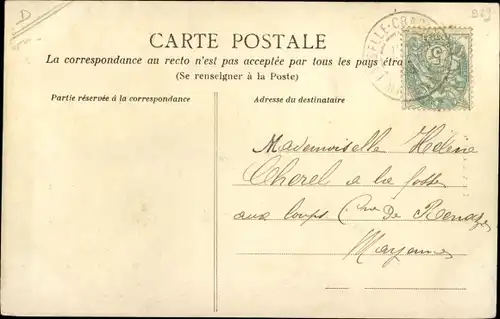 D
CARTE POSTALE
La correspondance au recto n'est pas acceptée par tous les pays étra
(Se renseigner à la Poste)
Partie réservée à la correspondance
Adresse du destinataire
5
Mademoiselle Hélène
Cherel a la fosse
aux loups (Cne De Renazé
Mayenne